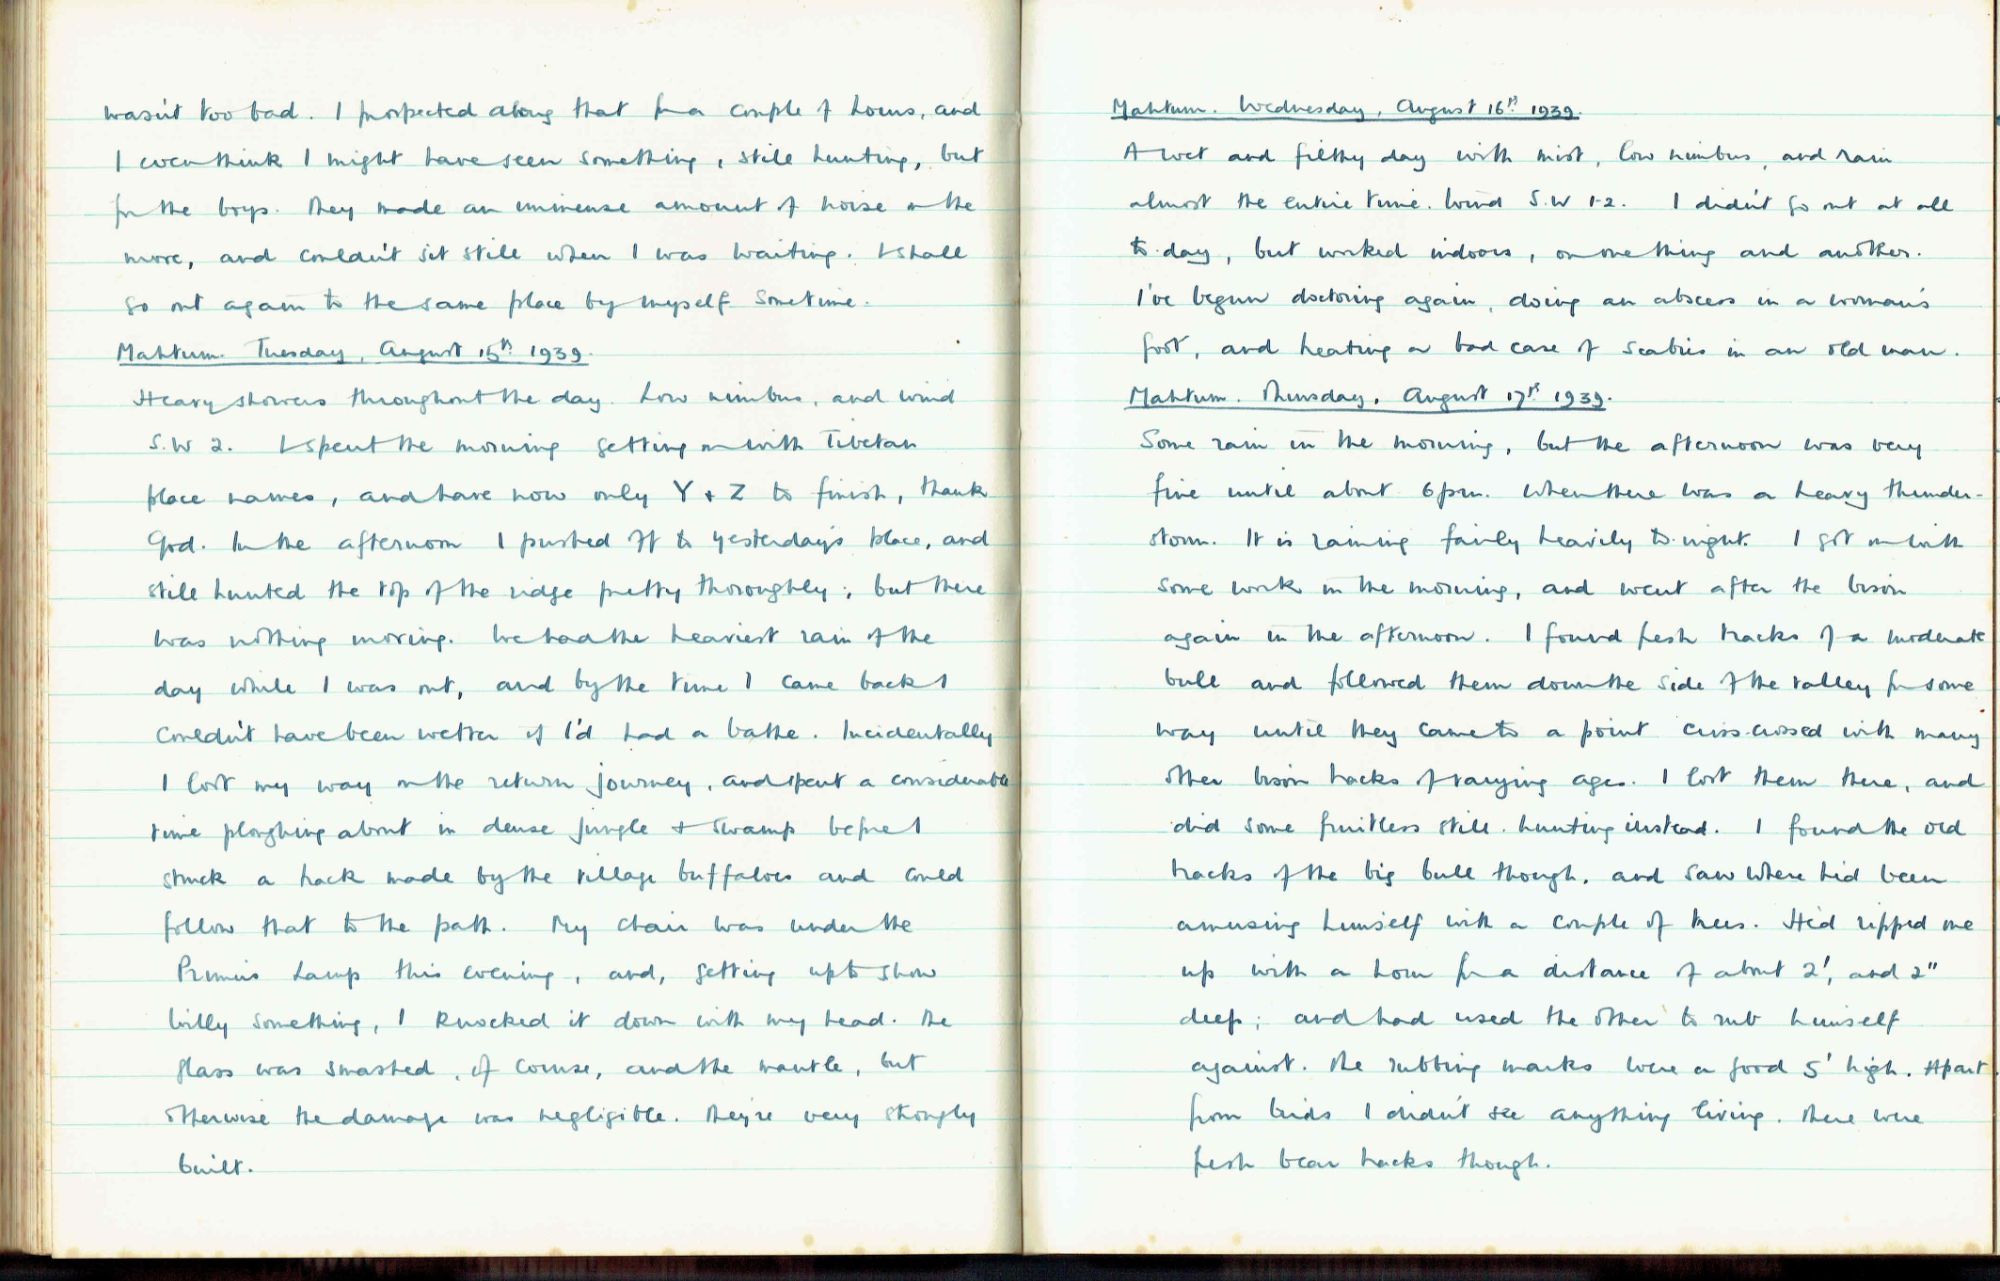 wasn't too bad. I prospected along that for a couple of hours, and
I even think I might have seen something, still hunting, but
for the boys. They made an immense amount of noise on the
move, and couldn't sit still when I was waiting. I shall
go out again to the same place by myself sometime.
Mahtum. Tuesday, August 15th 1939.
Heavy showers throughout the day. Low nimbus, and wind
S.W 2. I spent the morning getting on with Tibetan
place names, and have now only Y & Z to finish, thank
God. In the afternoon I pushed off to yesterday's place, and
still hunted the top of the ridge pretty thoroughly; but there
was nothing moving. We had the heaviest rain of the
day while I was out, and by the time I came back I
couldn't have been wetter if I'd had a bathe. Incidentally
I lost my way on the return journey, and spent a considerable
time ploughing about in dense jungle & swamp before I
struck a track made by the village buffaloes and could
follow that to the path. My chair was under the
Primus lamp this evening, and, getting up to show
Willy something, I knocked it down with my head. The
glass was smashed, of course, and the mantle, but
otherwise the damage was negligible. They're very strongly
built.
Mahtum. Wednesday, August 16th 1939.
A wet and filthy day with mist, low nimbus, and rain
almost the entire time. Wind S.W 1-2. I didn't go out at all
to-day, but worked indoors, on one thing and another.
I've begun doctoring again, doing an abscess in a woman's
foot, and treating a bad case of scabies in an old man.
Mahtum. Thursday, August 17th 1939.
Some rain in the morning, but the afternoon was very
fine until about 6pm. when there was a heavy thunder-
storm. It is raining fairly heavily to-night. I got on with
some work in the morning, and went after the bison
again in the afternoon. I found fresh tracks of a moderate
bull and followed them down the side of the valley for some
way until they came to a point criss-crossed with many
other bison tracks of varying ages. I lost them there, and
did some fruitless still-hunting instead. I found the old
tracks of the big bull though, and saw where he'd been
amusing himself with a couple of trees. He'd ripped one
up with a horn for a distance of about 2', and 2"
deep; and had used the other to rub himself
against. The rubbing marks were a good 5' high. Apart
from birds I didn't see anything living. There were
fresh bear tracks though.